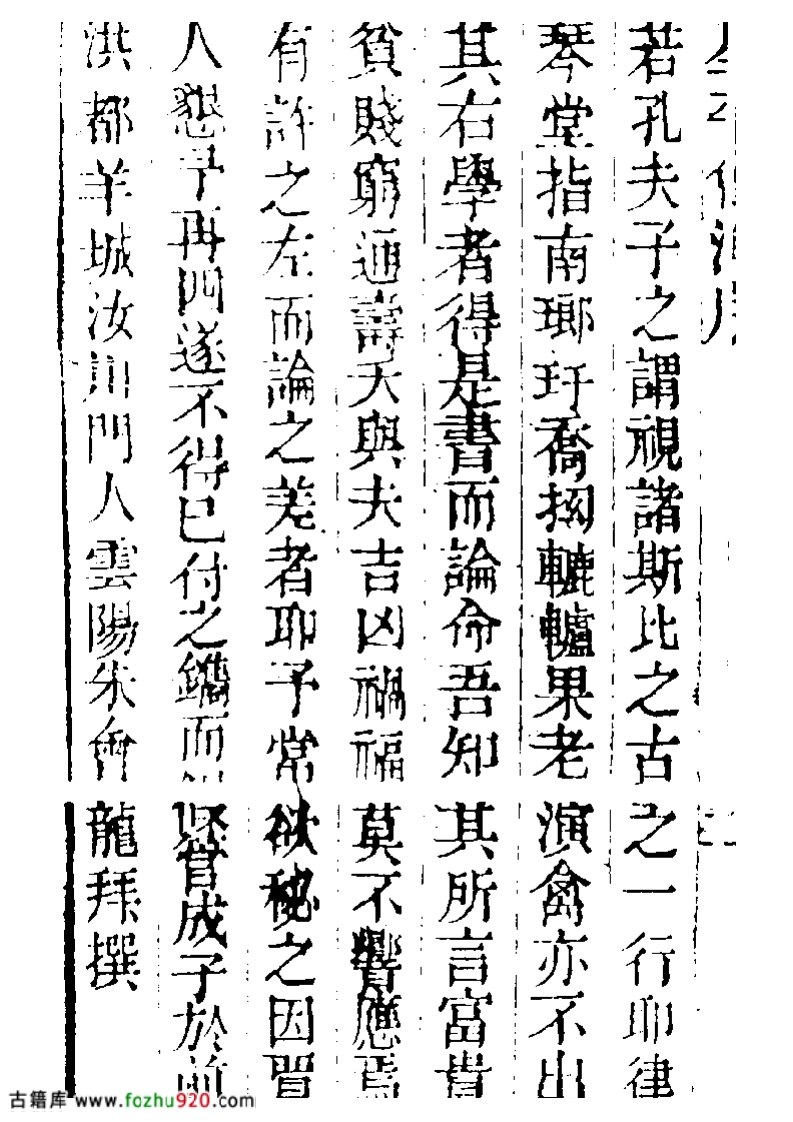 若孔夫子之謂視諸斯比之古之一行耶律
琴堂指南瑯玕喬拗轆轤果老演禽亦不出
其右學者得是書而論命吾知其所言富貴
貧賤窮通壽夭與夫吉凶禍福莫不響應焉
有許之左而論之差者耶予常欲秘之因
人懇予再四遂不得已付之鐫而成子於前
洪都羊城汝川門人雲陽朱會龍拜撰
古籍库 www.fozhu920.com